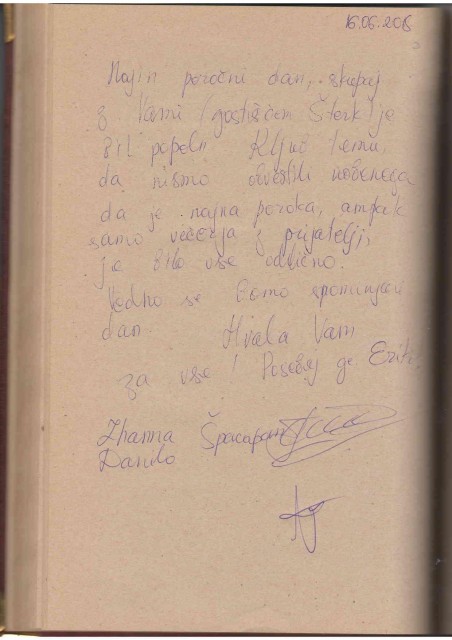 16.06.2018
Najin poročni dan, skupaj
z Vami (gostiščem Šterk) je
bil popoln. Ključ temu,
da nismo obvestili nobenega
da je najna poroka, ampak
samo večerja z prijatelji,
je bilo vse odlično.
Vedno se bomo spominjali
dan. Hvala Vam
za vse! Posebej ge
Zhanna Špacapan
Danilo